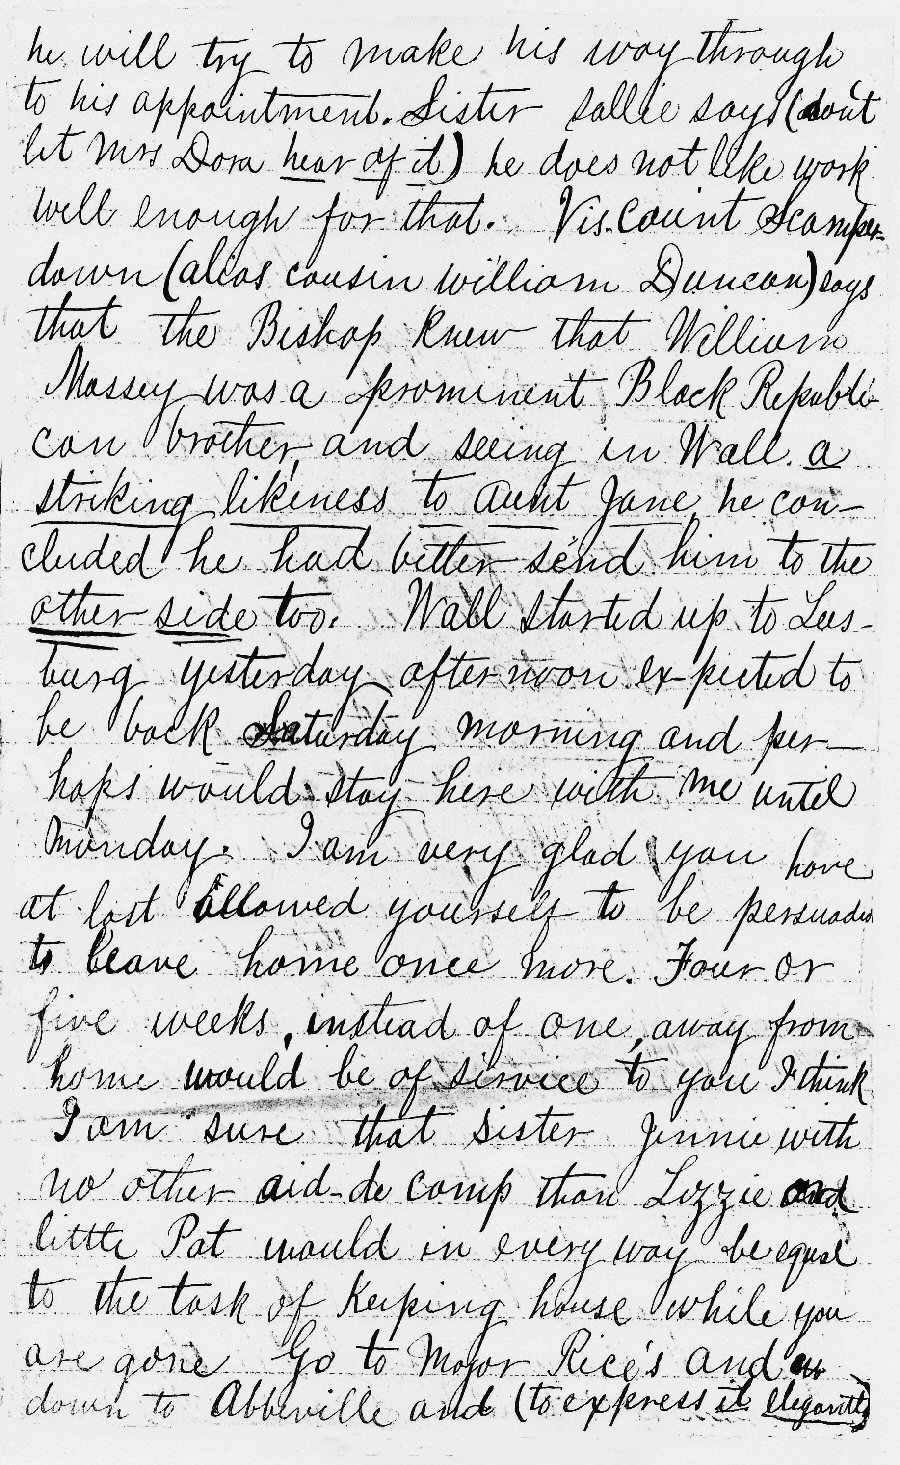 he will try to make his way through
to his appointment. Sister Sallie says (don't
let Mrs Dora hear of it) he does not like work
well enough for that. Vis. Count Scamper-
down (alias cousin William Duncan) says
that the Bishop knew that William
Massey was a prominent Black Republi-
can brother, and seeing in Wall. a
striking likeness to Aunt Jane, he con-
cluded he had better send him to the
other side too. Wall started up to Lees-
burg yesterday afternoon expected to
be back Saturday morning and per-
haps would stay here with me until
Monday. I am very glad you have
at last allowed yourself to be persuaded
to leave home once more. Four or
five weeks, instead of one, away from
home would be of service to you I think
I am sure that sister Jennie with
no other aid-de camp than Lizzie and
little Pat would in every way be equal
to the task of keeping house while you
are gone Go to Major Rice's and
down to Abbeville and (to express it elegantly)